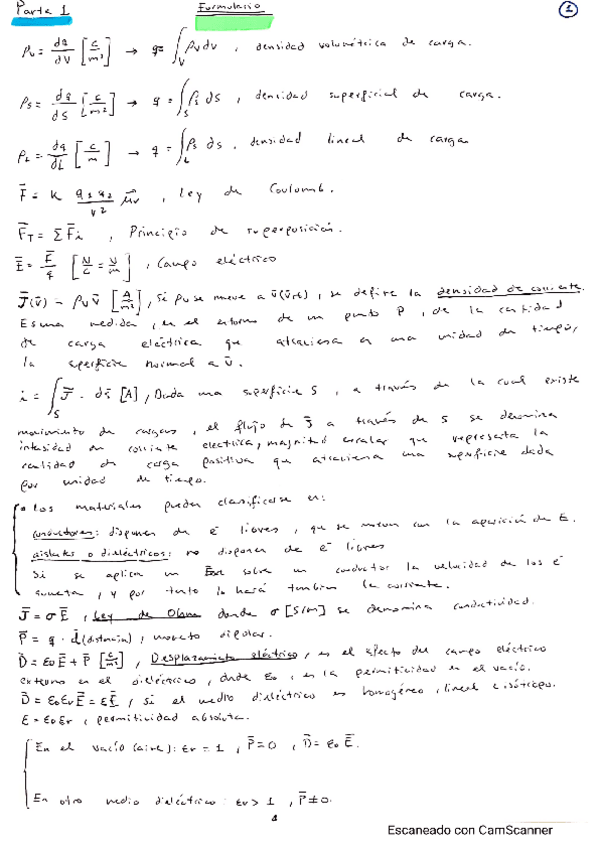 Parte 1 Formulario 1
ρv = dq/dV [C/m³] → q = ∫v ρv dv, densidad volumétrica de carga.
ρs = dq/ds [C/m²] → q = ∫s ρs ds, densidad superficial de carga.
ρL = dq/dL [C/m] → q = ∫L ρs ds, densidad lineal de carga
F̄ = K q1 q2/r² ūr, Ley de Coulomb.
F̄T = Σ F̄i, Principio de superposición.
Ē = F̄/q [N/C = V/m], Campo eléctrico
J̄(v̄) = ρv v̄ [A/m²], si ρv se mueve a v̄(v̄,t), se define la densidad de corriente.
Es una medida, en el entorno de un punto P, de la cantidad
de carga eléctrica que atraviesa en una unidad de tiempo,
la superficie normal a v̄.
i = ∫s J̄ · ds̄ [A], Dada una superficie S, a través de la cual existe
movimiento de cargas, el flujo de J̄ a través de S se denomina
intesidad de corriente electrica, magnitud escalar que representa la
cantidad de carga positiva que atraviesa una superficie dada
por unidad de tiempo.
• Los materiales pueden clasificarse en:
conductores: disponen de e⁻ libres, que se mueven con la aparición de E.
aislantes o dieléctricos: no disponen de e⁻ libres
Si se aplica un Ēext sobre un conductor la velocidad de los e⁻
aumenta, y por tanto lo hará tambien la corriente.
J̄ = σ Ē, Ley de Ohm donde σ [S/m] se denomina conductividad.
P̄ = q · d̄ (distancia), momento dipolar.
D̄ = ε0 Ē + P̄ [C/m²], Desplazamiento eléctrico, es el efecto del campo eléctrico
externo en el dieléctrico, donde ε0, es la permitividad en el vacío.
D̄ = ε0 εr Ē = ε Ē, si el medio dieléctrico es homogéneo, lineal e isótropo.
ε = ε0 εr, permitividad absoluta.
En el vacío (aire): εr = 1, P̄ = 0, D̄ = ε0 Ē.
En otro medio dieléctrico: εr > 1, P̄ ≠ 0.
Escaneado con CamScanner